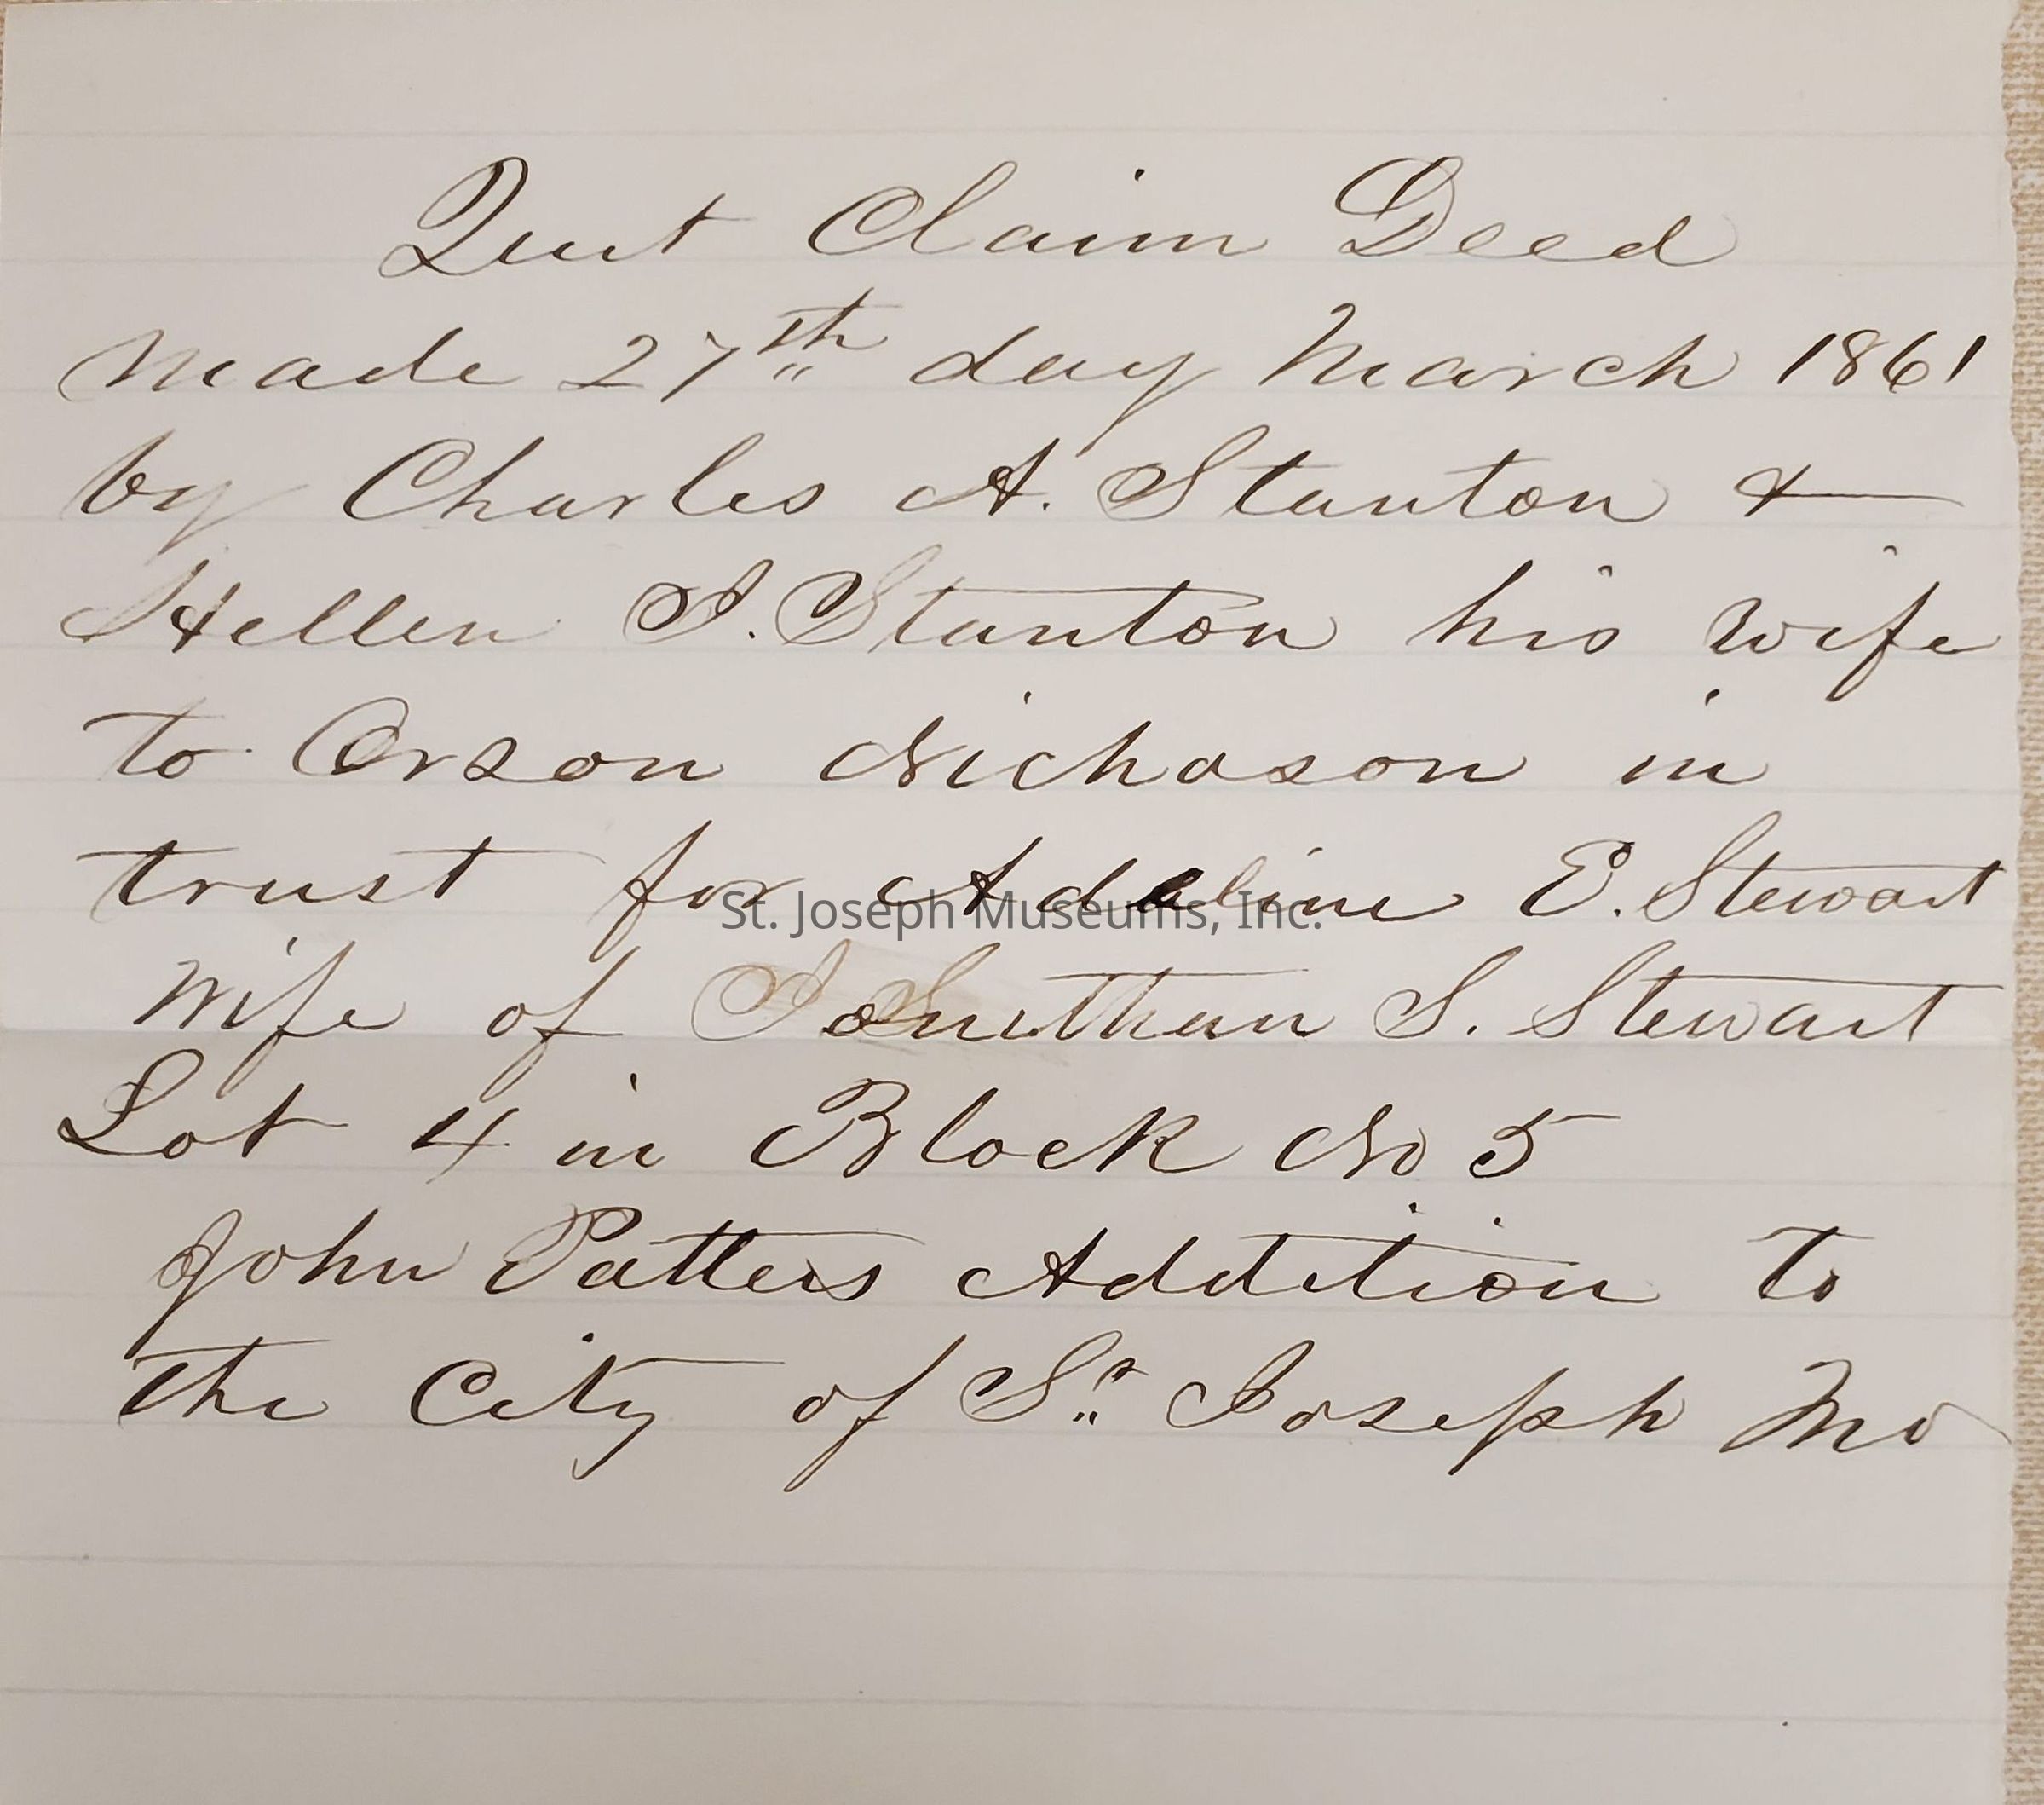 Quit Claim Deed
Made 27th day March 1861
by Charles A. Stanton &
Hellen J. Stanton his wife
to Orson Nichoson in
trust for Adaline E. Stewart
St. Joseph Museums, Inc.
Wife of Jonathan S. Stewart
Lot 4 in Block No 5
John Patters Addition to
the City of St. Joseph Mo